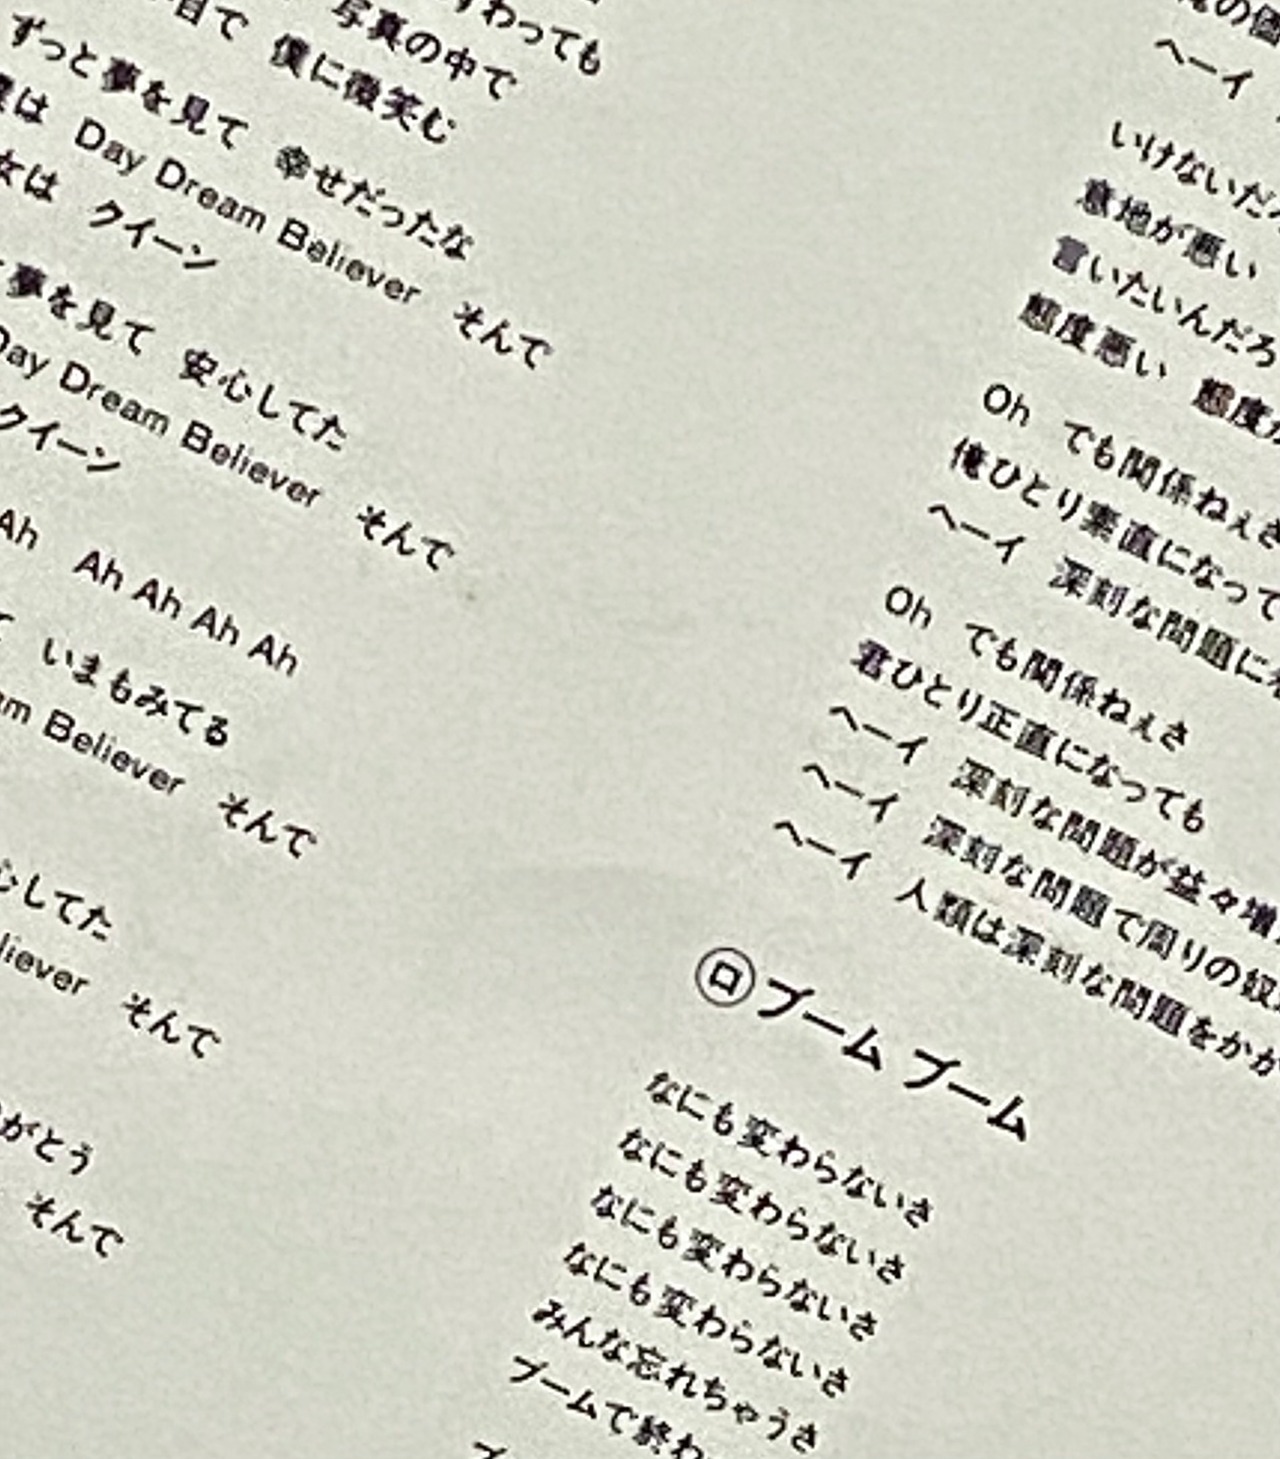 写真の中で
僕に微笑む
ずっと夢を見て 幸せだったな
Day Dream Believer そんで
クイーン
夢を見て 安心してた
Day Dream Believer そんで
クイーン
Ah Ah Ah Ah Ah
いまもみてる
Believer そんで
してた
そんで
がとう
そんで
ヘーイ
いけないだろ
意地が悪い
言いたいんだろ
態度悪い 態度が
Oh でも関係ねぇさ
俺ひとり素直になって
ヘーイ 深刻な問題に
Oh でも関係ねぇさ
君ひとり正直になっても
ヘーイ 深刻な問題が益々増
ヘーイ 深刻な問題で周りの奴
ヘーイ 人類は深刻な問題をかか
ロ ブーム ブーム
なにも変わらないさ
なにも変わらないさ
なにも変わらないさ
なにも変わらないさ
みんな忘れちゃうさ
ブームで終わ